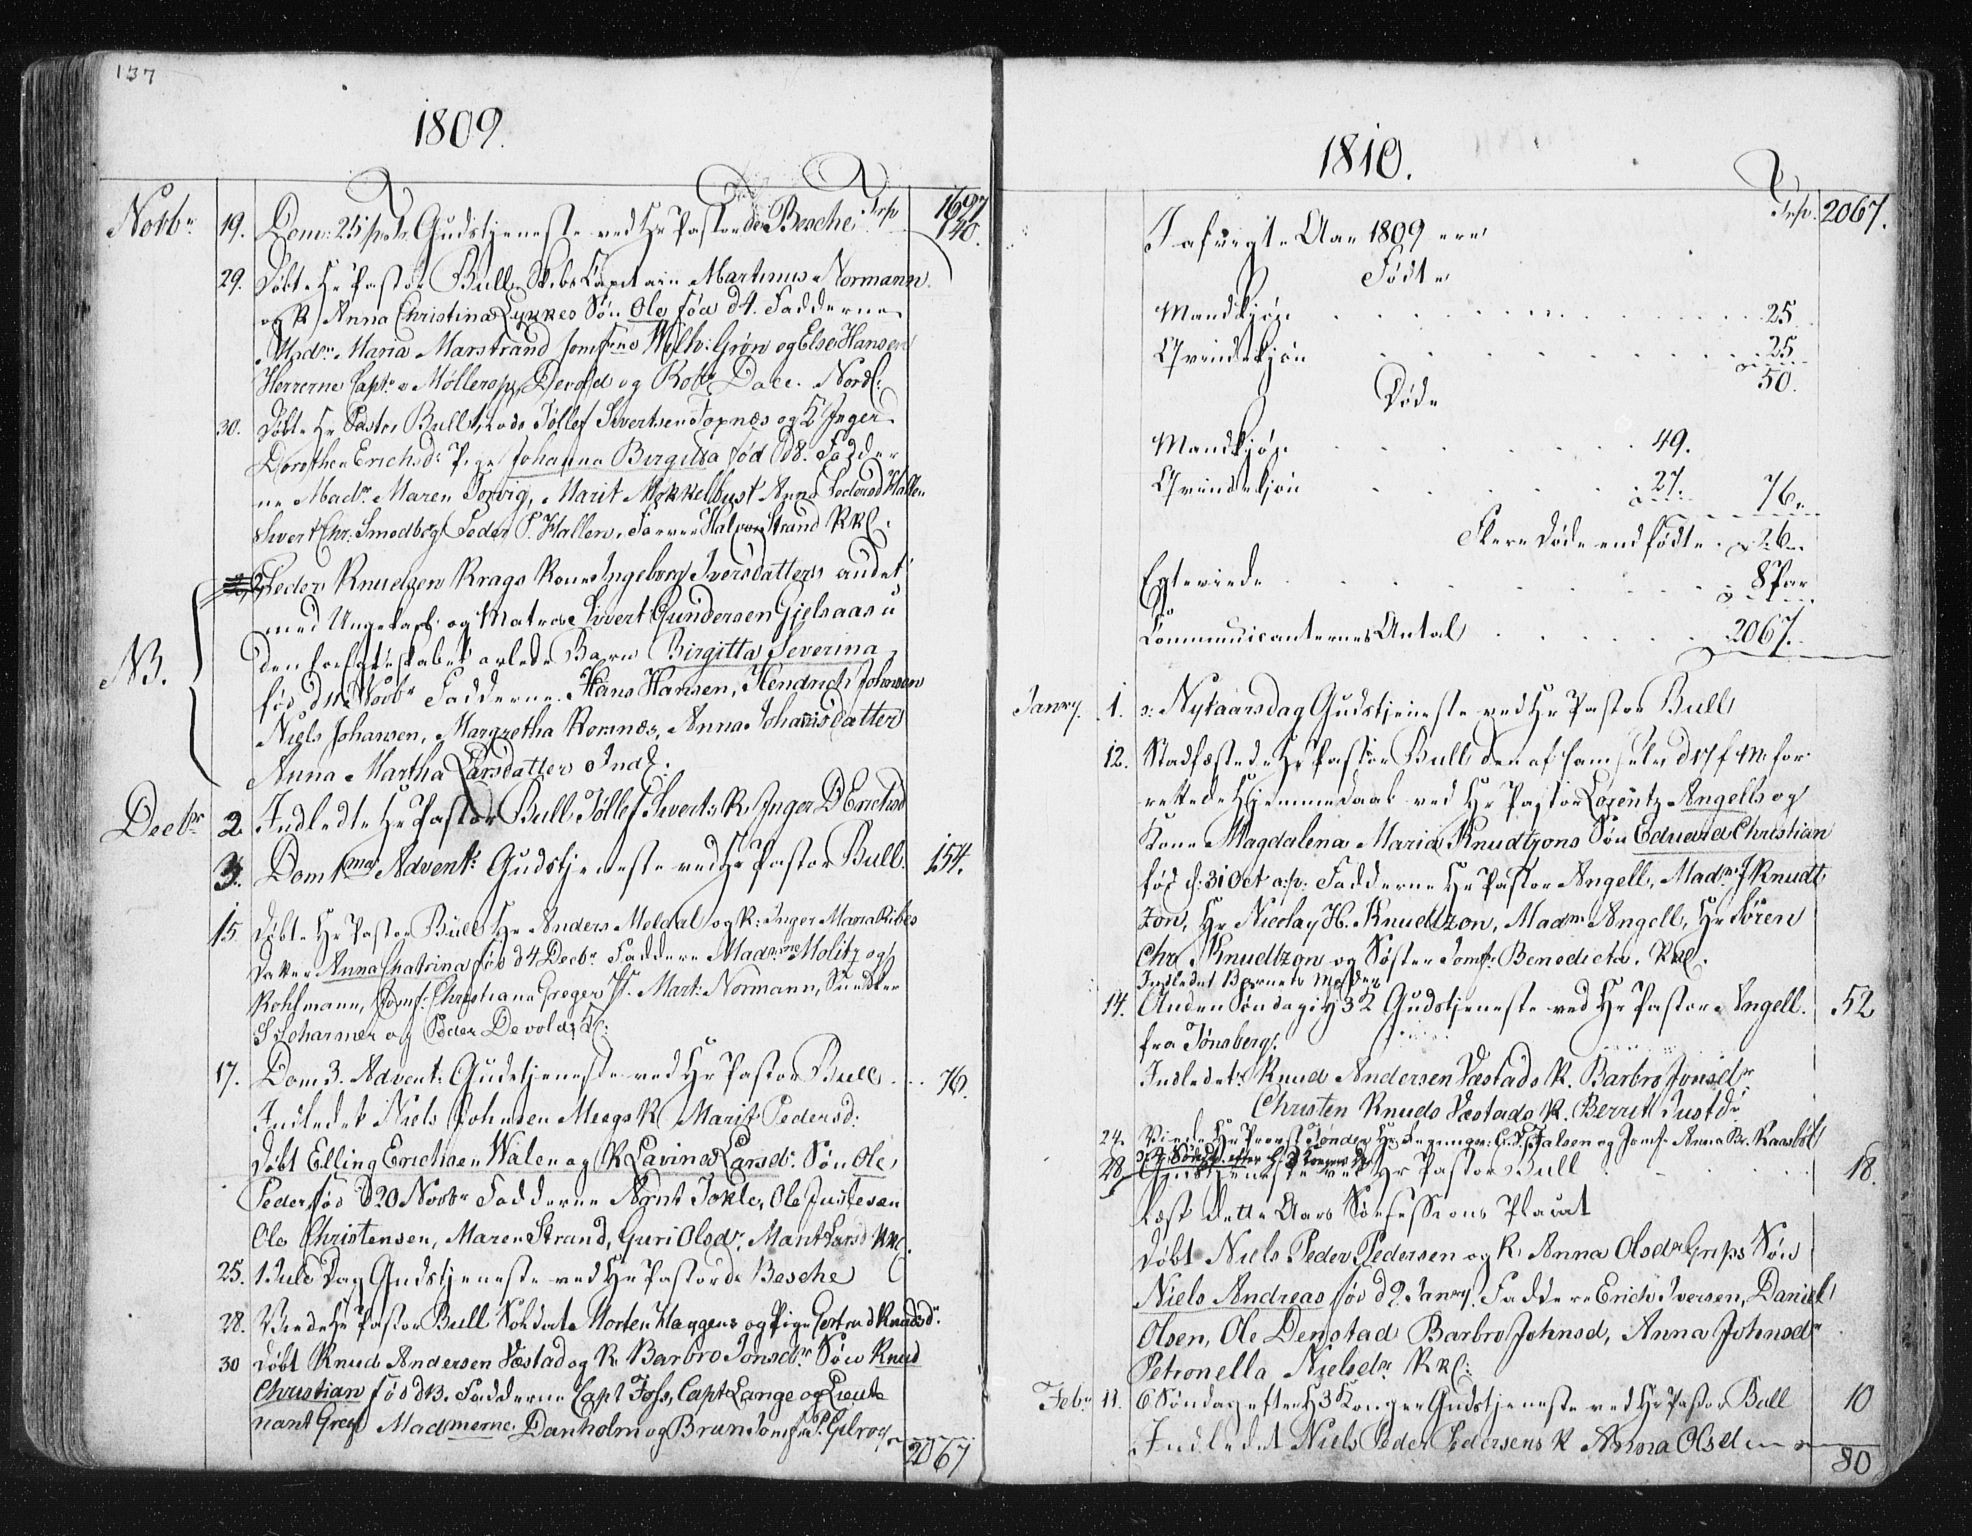 137
1809.
Novbr 19. Dom: 25 p. Tr. Gudstjeneste ved Hr Pastor de Besche Trsp 1697
140.
29. Døbte Hr Pastor Bull Skibs Capitain Martinus Normann
og K Anna Christina Lykkes Søn Ole fød d 4. Fadderne
Madm Maria Marstrand Jomfrue Wilh: Grøn og Else Hansen
Herrerne Capt. v Møllerop, Devold og Robt Dall. Nordl:
30. Døbte Hr Pastor Bull Tollef Sivertsen Topnæs og K Inger
Dorothea Erichsdr Pige Johanna Birgitta fød d 8. Fadder
ne Madm Maren Torvig, Marit Mekkelbust Anne Pedersd Hallen
Sivert Chr. Smedberg Peder P. Hallen, Halvor Strand KKl:
2 Peder Knudsen Krags Kone Ingeborg Iversdatters andet
med Ungekarl og Matros Sivert Gundersen Gjelsaas u
NB. den for Ægteskabet avlede Barn Birgitta Severina
fød d Novbr Fadderne Hans Hansen, Hendrich Johansen
Niels Johansen, Margretha Romnæs, Anna Johannisdatter
Anna Martha Larsdatter Indl:
Decbr 2 Indledte Hr Pastor Bull Tollef Siverts: K Inger D Erichsd
3. Dom 1ma Advent: Gudstjeneste ved Hr Pastor Bull. 154.
15 Døbte Hr Pastor Bull Hr Anders Meldal og K: Inger Maria Ribes
Datter Anna Chatrina fød d 4 Decbr Faddere Madme Molitz og
Kohlmann, Jomf: Christiane Greger Hr. Mart: Normann, Sundter
S Scharmer og Peder Devold Kl:
17. Dom 3. Advent: Gudstjeneste ved Hr Pastor Bull 76.
Indledet Niels Johnsen Meegs K Marit Pedersd:
Døbt Elling Erichsen Walen og K Lavina Larsdr Søn Ole
Peder fød d 20 Novbr Fadderne Arnt Tokle, Ole Justesen
Ole Christensen, Maren Strand, Guri Olsdr, Marit Larsd KKl.
25. 1. Jule Dag Gudstjeneste ved Hr Pastor de Besche
28. Viede Hr Pastor Bull Soldat Morten Haggens og Pige Gertrud Knudsdr
30 Døbt Knud Andersen Væstad og K Barbro Jonsdr Søn Knud
Christian fød d 13. Fadderne Capt Foss, Capt Lange og Lieute
nant Greve Madmerne Danholm og Brun Jomfr P. Gilroy
2067
1810.
Trsp. 2067.
I afvigte Aar 1809 ere
Fødte
Mandkjøn 25
Qvindekjøn 25
50.
Døde
Mandkjøn 49.
Qvindekjøn 27. 76
Flere Døde end fødte 26
Egteviede 8 Par
Communicanternes Antal 2067.
Janry. 1. Nytaarsdag Gudstjeneste ved Hr Pastor Bull
12. Stadfæstede Hr Pastor Bull den af ham selv d 17 f M for
rettede Hjemmedaab ved Hr Pastor Lorentz Angells og
Kone Magdalena Maria Knudtzons Søn Eduard Christian
fød d: 31 Oct a: p: Fadderne Hr Pastor Angell, Madm J Knudt
zon, Hr Nicolay H. Knudtzon, Madm Angell, Hr Søren
Chr. Knudtzon og Søster Jomf: Benedicta. KKl.
Indledet Barnets Moder
14. Anden Søndag e H 3 K Gudstjeneste ved Hr Pastor Angell. 52
fra Tønsberg.
Indledet: Knud Andersen Væstads K. Barbro Jonsdr
Christen Knuds Væstads K. Berrit Justdr
24. Viede Hr Provst Tønder Hr C. Falsen og Jomfr Anna Br. Kaasbøl
28 3. Søndag efter H 3 Konger
Gudstjeneste ved Hr Pastor Bull 18.
Læst dette Aars Concessions Placat
Døbt Niels Peder Pedersen og K Anna Olsdr Grips Søn
Niels Andreas fød d 2. Janry. Faddere Erich Iversen, Daniel
Olsen, Ole Denstad Barbro Johnsd, Anna Johnsdr
Petronella Nielsdr KKl:
Febr 11. 6 Søndag efter H 3 Konger Gudstjeneste ved Hr Pastor Bull 10
Indledet Niels Peder Pedersens K Anna Olsd
80